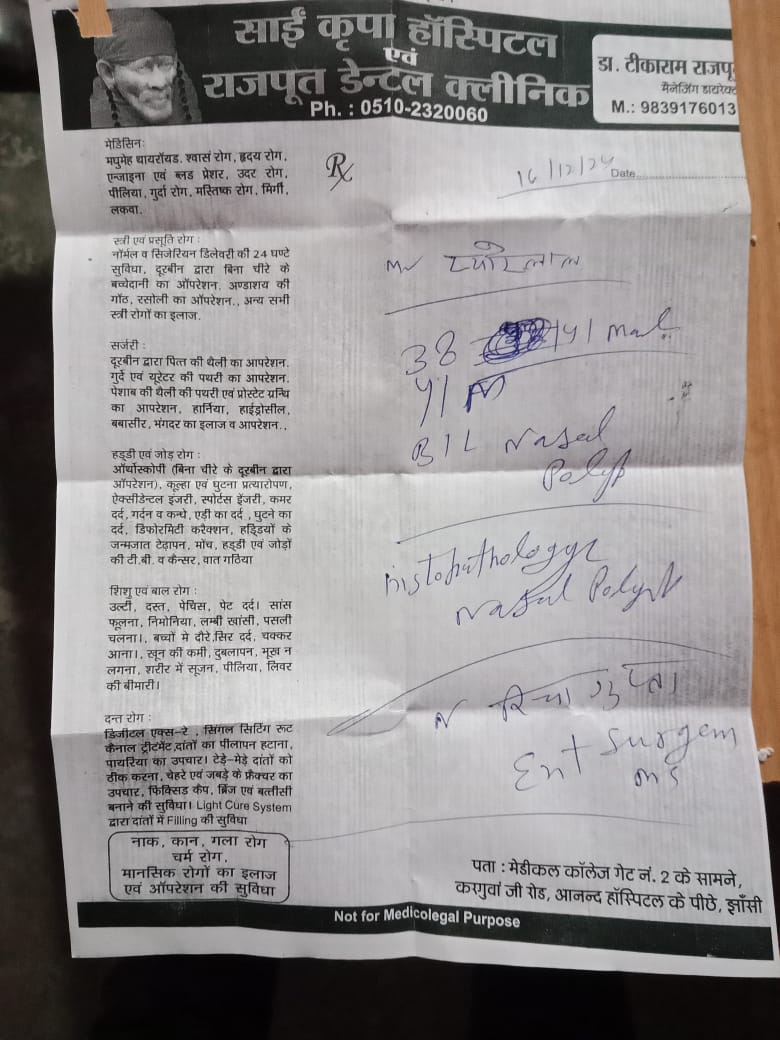 साईं कृपा हॉस्पिटल
एवं
राजपूत डेन्टल क्लीनिक
Ph. : 0510-2320060
डा. टीकाराम राजपू
मैनेजिंग डायरेक्ट
M.: 9839176013
मेडिसिनः
मधुमेह थायरॉयड. श्वांस रोग, हृदय रोग,
एन्जाइना एवं ब्लड प्रेशर, उदर रोग,
पीलिया, गुर्दा रोग, मस्तिष्क रोग, मिर्गी,
लकवा.
स्त्री एवं प्रसूति रोग :
नॉर्मल व सिजेरियन डिलेवरी की 24 घण्टे
सुविधा, दूरबीन द्वारा बिना चीरे के
बच्चेदानी का ऑपरेशन. अण्डाशय की
गाँठ, रसोली का ऑपरेशन., अन्य सभी
स्त्री रोगों का इलाज.
सर्जरी :
दूरबीन द्वारा पित्त की थैली का आपरेशन.
गुर्दे एवं यूरेटर की पथरी का आपरेशन.
पेशाब की थैली की पथरी एवं प्रोस्टेट ग्रन्थि
का आपरेशन, हार्निया, हाईड्रोसील,
बबासीर, भंगदर का इलाज व आपरेशन.,
हड्डी एवं जोड़ रोग :
ऑर्थोस्कोपी (बिना चीरे के दूरबीन द्वारा
ऑपरेशन), कूल्हा एवं घुटना प्रत्यारोपण,
ऐक्सीडेन्टल इंजरी, स्पोर्टस इंजरी, कमर
दर्द, गर्दन व कन्धे, एड़ी का दर्द , घुटने का
दर्द, डिफोरमिटी करैक्शन, हड्डियों के
जन्मजात टेढ़ापन, मोंच, हड्डी एवं जोड़ों
की टी.बी. व कैन्सर, वात गठिया
शिशु एवं बाल रोग :
उल्टी, दस्त, पेचिस, पेट दर्द। सांस
फूलना, निमोनिया, लम्बी खांसी, पसली
चलना।, बच्चों मे दौरे,सिर दर्द, चक्कर
आना।, खून की कमी, दुबलापन, भूख न
लगना, शरीर में सूजन, पीलिया, लिवर
की बीमारी।
दन्त रोग :
डिजीटल एक्स-रे , सिंगल सिटिंग रूट
कैनाल ट्रीटमेंट,दांतों का पीलापन हटाना,
पायरिया का उपचार। टेड़े-मेड़े दांतों को
ठीक करना, चेहरे एवं जबड़े के फ्रैक्चर का
उपचार, फिक्सिड कैप, ब्रिज एवं बत्तीसी
बनाने की सुविधा। Light Cure System
द्वारा दांतों में Filling की सुविधा
नाक, कान, गला रोग
चर्म रोग,
मानसिक रोगों का इलाज
एवं ऑपरेशन की सुविधा
Rx
16/12/24 Date
Mr प्यारेलाल
38 / y/ Male
y/ M
B/L Nasal
Polyp
Histopathology
Nasal Polyp
रिया गुप्ता
Ent Surgeon
MS
पता : मेडीकल कॉलेज गेट नं. 2 के सामने,
करगुवां जी रोड, आनन्द हॉस्पिटल के पीछे, झाँसी
Not for Medicolegal Purpose